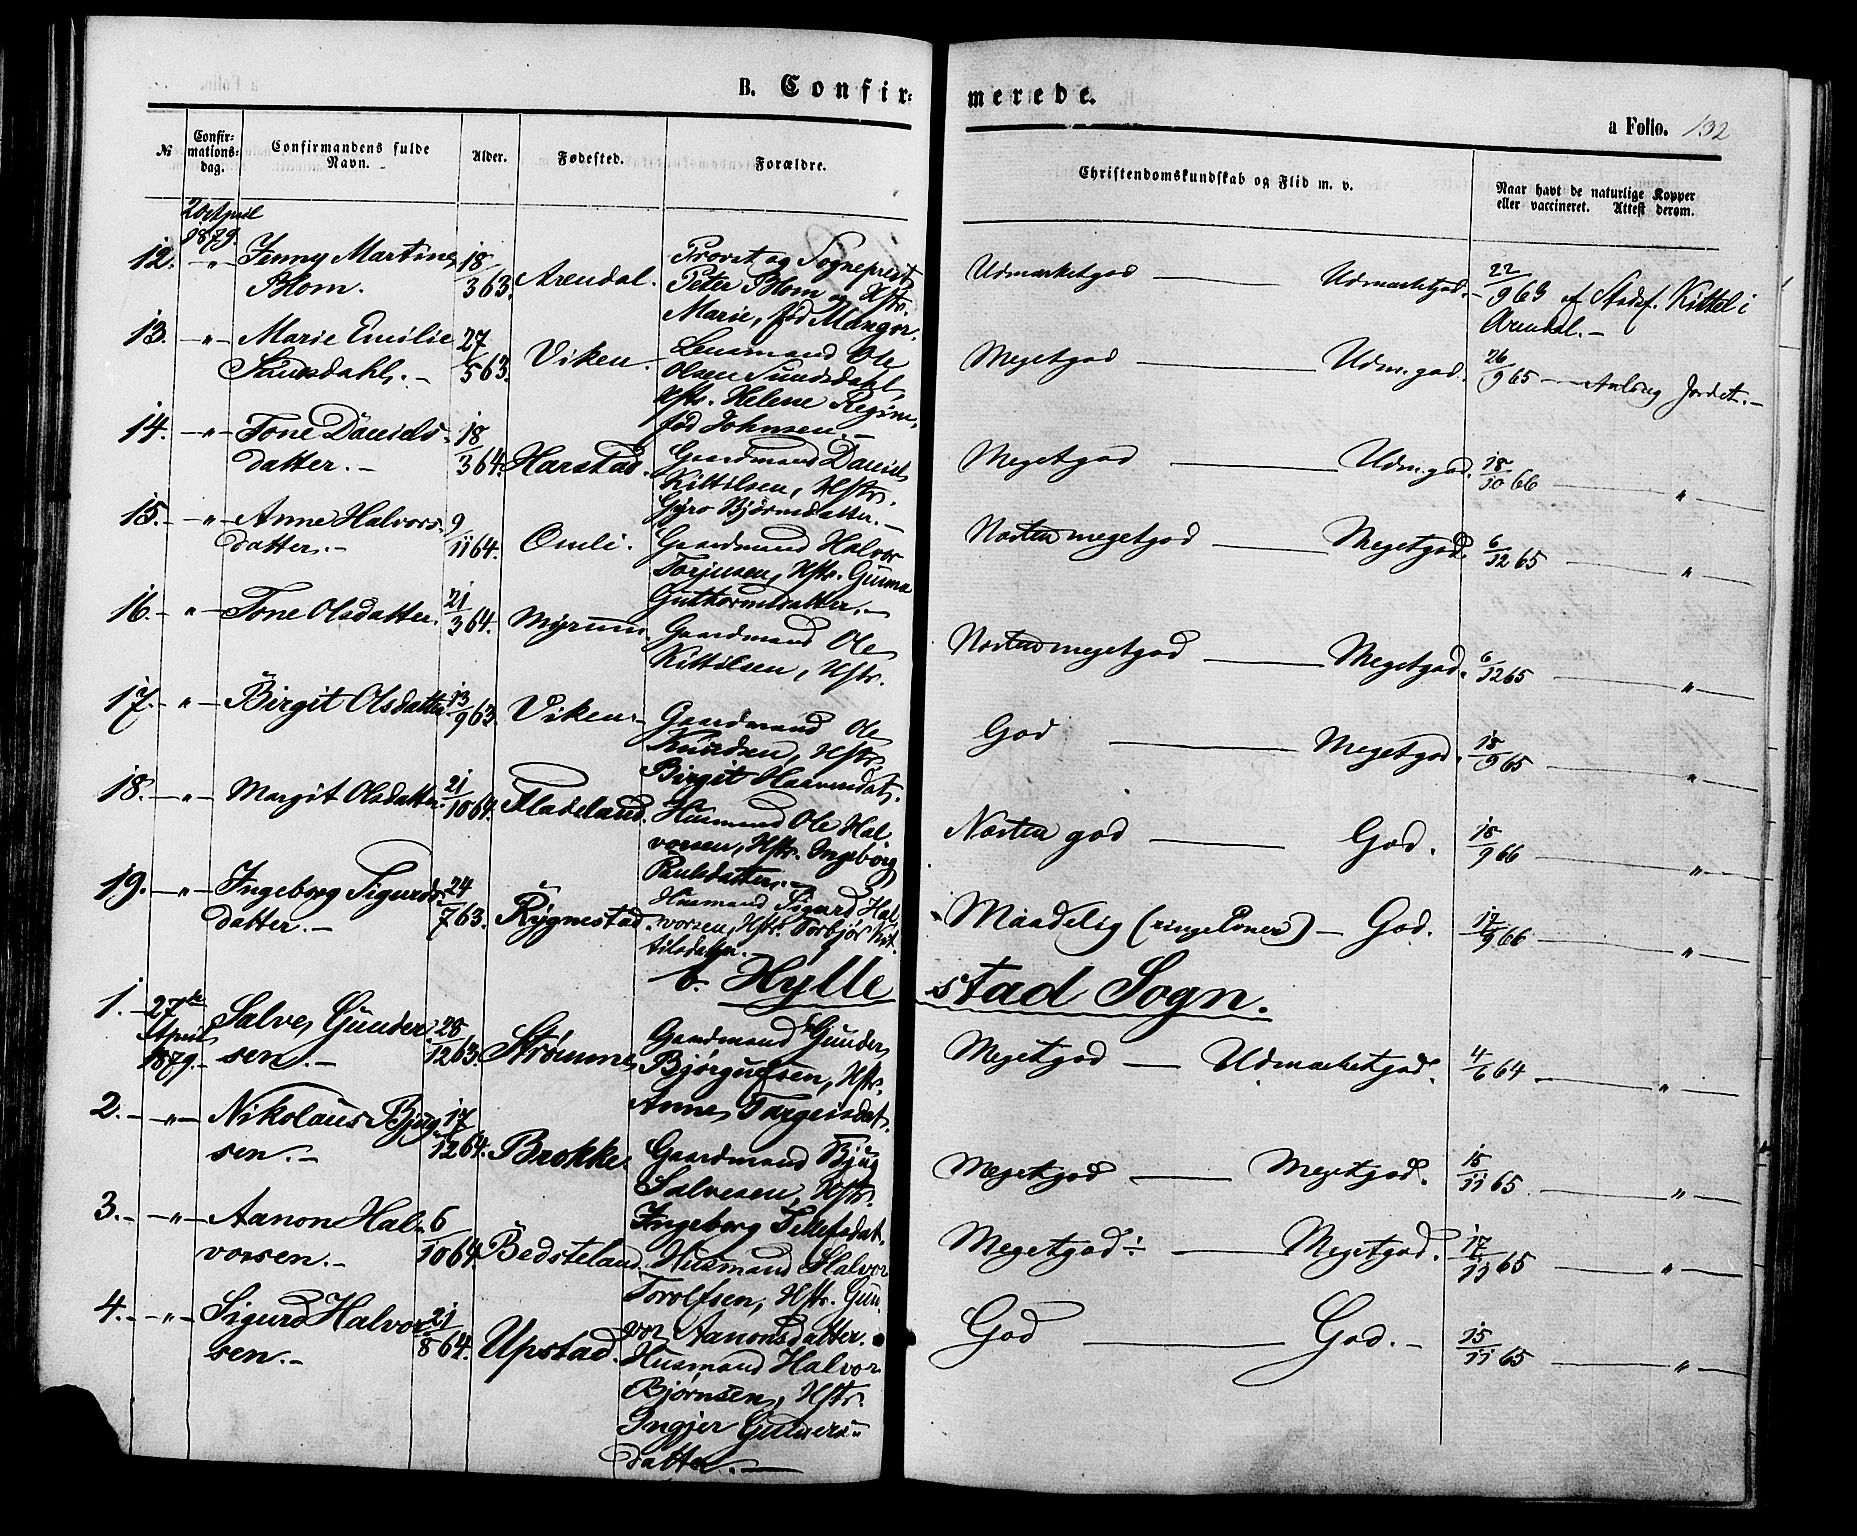 B. Confir-
merede.
a Folio. 132
№
Confir-
mations-
dag.
Confirmandens fulde
Navn.
Alder.
Fødested.
Forældre.
Christendomskundskab og Flid m. v.
Naar havt de naturlige Kopper
eller vaccineret. Attest derom.
20 April
1879.
12. - " - Jenny Martine 18/3 63. Arendal. Provst og Sogneprest Udmærketgod — Udmærketgod. 22/9 63 af Stadsf. Kittel i
Blom. Peter Blom og Hstr. Arendal. -
Marie, fød Mangor.
13. - " - Marie Emilie 27/5 63. Viken. Lensmand Ole Megetgod — Udm. god. 26/9 65 — Aslaug Jordet. -
Sundsdahl. - Olsen Sundsdahl,
Hstr. Helene Regine,
fød Johnsen. -
14. - " - Tone Daniels- 18/3 64. Harstad. Gaardmand Daniel Megetgod — Udm. god. 18/10 66 — "
datter. - Kittilsen, Hstr.
Gyro Bjørnsdatter. -
15. - " - Anne Halvors- 9/11 64. Omli. Gaardmand Halvor Næsten megetgod — Megetgod. 6/12 65 — "
datter. - Torjusen, Hstr. Gunna
Guthormsdatter. -
16. - " - Tone Olsdatter. 21/3 64. Myrum. Gaardmand Ole Næsten megetgod — Megetgod. 6/12 65 — "
Kittilsen, Hstr.
17. - " - Birgit Olsdatter. 13/9 63. Viken. - Gaardmand Ole God — Megetgod. 18/9 65 — "
Knudsen, Hstr.
Birgit
18. - " - Margit Olsdatter. 21/10 64. Fladeland. Husmand Ole Hal- Næsten god — God. 18/9 66 — "
vorsen, Hstr. Ingeborg
Paulsdatter. -
19. - " - Ingeborg Sigurds- 24/7 63. Rygnestad. Husmand Sigurd Hal- Maadelig (ringe Evner) - God. 17/9 66 — "
datter. - vorsen, Hstr. Torbjør Kit-
tilsdatter. -
b. Hyllestad Sogn.
1. - 27de Salve Gunder- 28/12 63. Strømme, Gaardmand Gunder Megetgod — Udmærketgod. 4/6 64 — "
April sen. - Bjørgulfsen, Hstr.
1879. - Anne Targeisdat.
2. - " - Nikolaus Bjug- 17/12 64. Brokke. Gaardmand Bjug Megetgod — Megetgod. 15/11 65. — "
sen. - Salvesen, Hstr.
Ingeborg Tellefsdat.
3. - " - Aanon Hal- 6/10 64. Bedsteland. Husmand Halvor Megetgod ÷ — Megetgod. 17/11 65 — "
vorsen. - Torolfsen, Hstr. Gun-
vor Aanonsdatter.
4. - " - Sigurd Halvor- 21/8 64. Upstad. Husmand Halvor God — God. - 15/11 65 — "
sen. - Bjørnsen, Hstr.
Ingjer Gunders-
datter. -